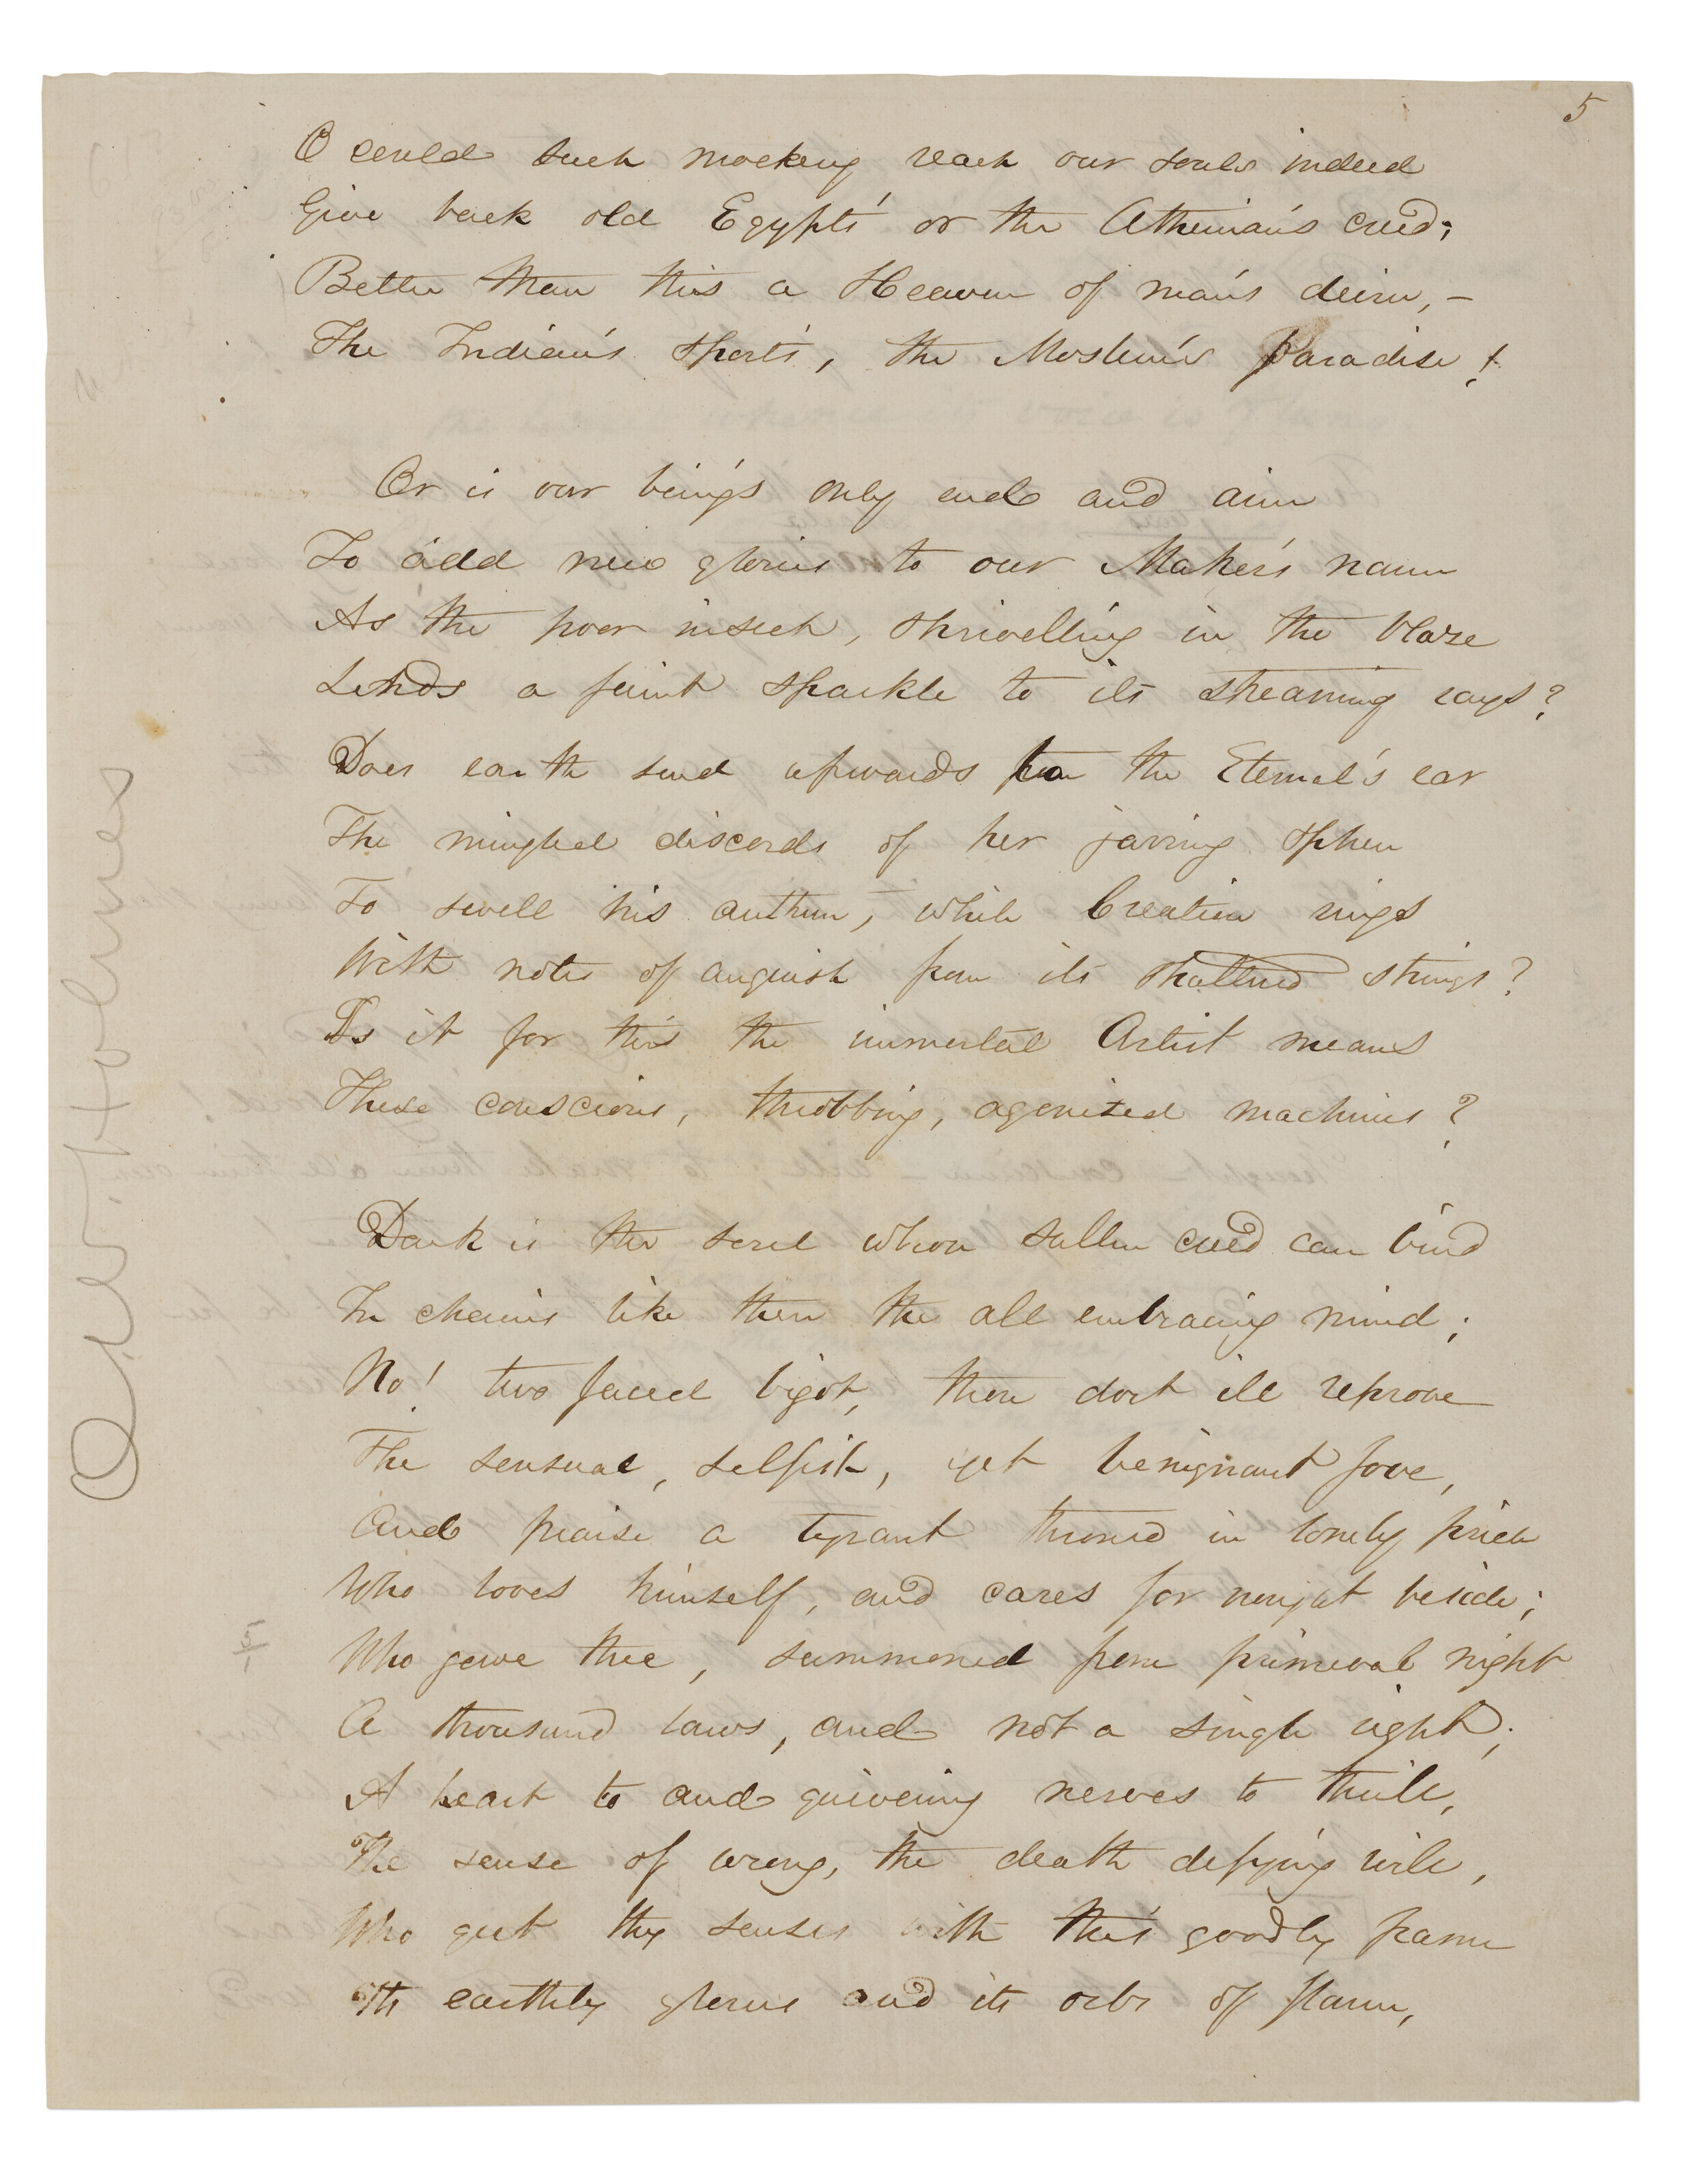 5
O could such mockery reach our souls indeed
Give back old Egypt's or the Athenian's creed;
Better than this a Heaven of man's device, –
The Indian's sports, the Moslem's Paradise!
Or is our being's only end and aim
To add new glories to our Maker's name
As the poor insect, shrivelling in the blaze
Lends a faint sparkle to its streaming rays?
Does earth send upwards to the Eternal's ear
The mingled discords of her jarring sphere
To swell his anthem, while Creation rings
With notes of anguish from its shattered strings?
Is it for this the immortal Artist means
These conscious, throbbing, agonized machines?
Dark is the soul whose sullen creed can bind
In chains like these the all embracing mind;
No! two faced bigot, thou dost ill reprove
The sensual, selfish, yet benignant Jove,
And praise a tyrant throned in lonely pride
Who loves himself, and cares for nought beside;
Who gave thee, summoned from primeval night
A thousand laws, and not a single right;
A heart to and quivering nerves to thrill,
The sense of wrong, the death defying will,
Who girt thy senses with this goodly frame
Its earthly glories and its orbs of flame,
5
O. W. Holmes